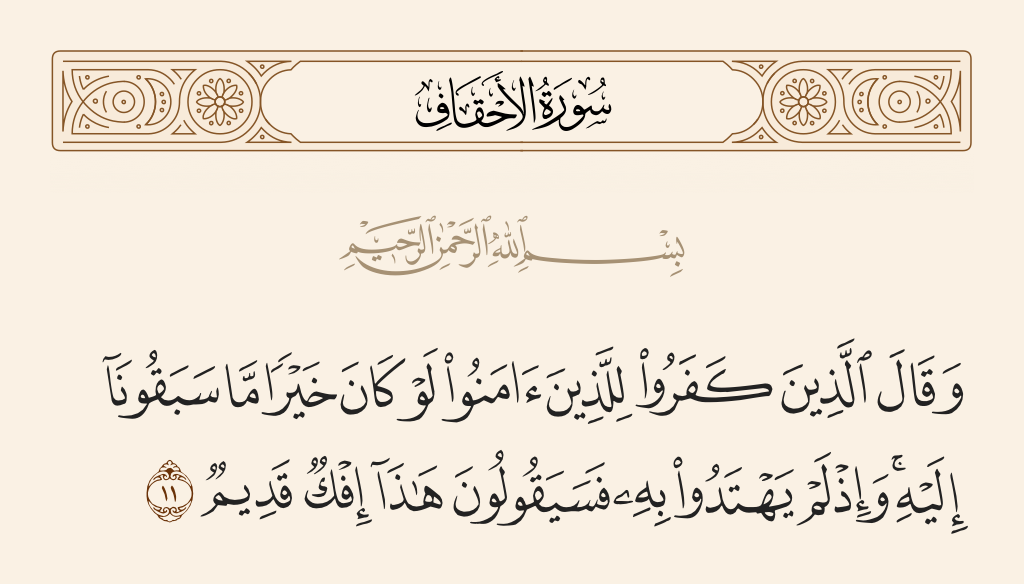 سُورَةُ الأَحْقَافِ
بِسْمِ ٱللَّهِ ٱلرَّحْمَٰنِ ٱلرَّحِيمِ
وَقَالَ ٱلَّذِينَ كَفَرُوا۟ لِلَّذِينَ ءَامَنُوا۟ لَوْ كَانَ خَيْرًا مَّا سَبَقُونَآ
إِلَيْهِ ۚ وَإِذْ لَمْ يَهْتَدُوا۟ بِهِۦ فَسَيَقُولُونَ هَٰذَآ إِفْكٌ قَدِيمٌ ١١